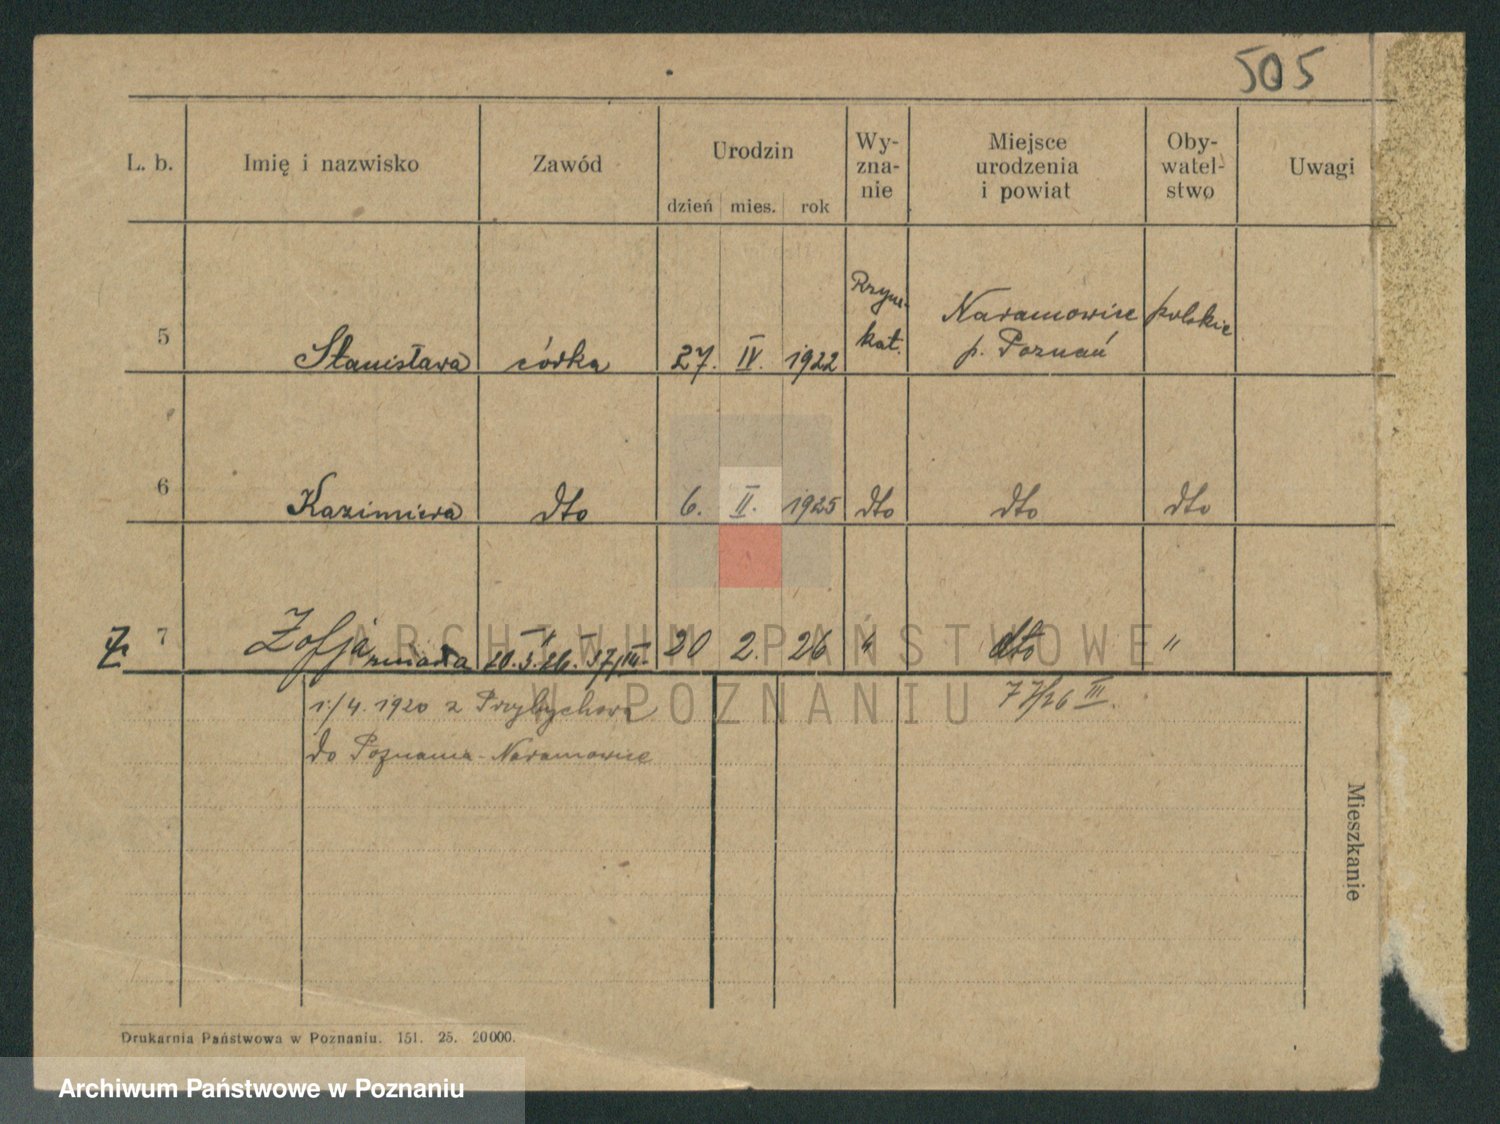 505
L. b. Imię i nazwisko Zawód Urodzin dzień mies. rok Wy-zna-nie Miejsce urodzenia i powiat Oby-watel-stwo Uwagi
5 Stanisława córka 27. IV. 1922 Rzym. kat. Naramowice p. Poznań polskie
6 Kazimiera dto 6. II. 1925 dto dto dto
7 Zofja zmarła 20 2. 26 " dto "
1./4. 1920 z Przybychowa
do Poznania-Naramowice
77/26 III.
Mieszkanie
ARCHIWUM PAŃSTWOWE
W POZNANIU
Drukarnia Państwowa w Poznaniu. 151. 25. 20000.
Archiwum Państwowe w Poznaniu